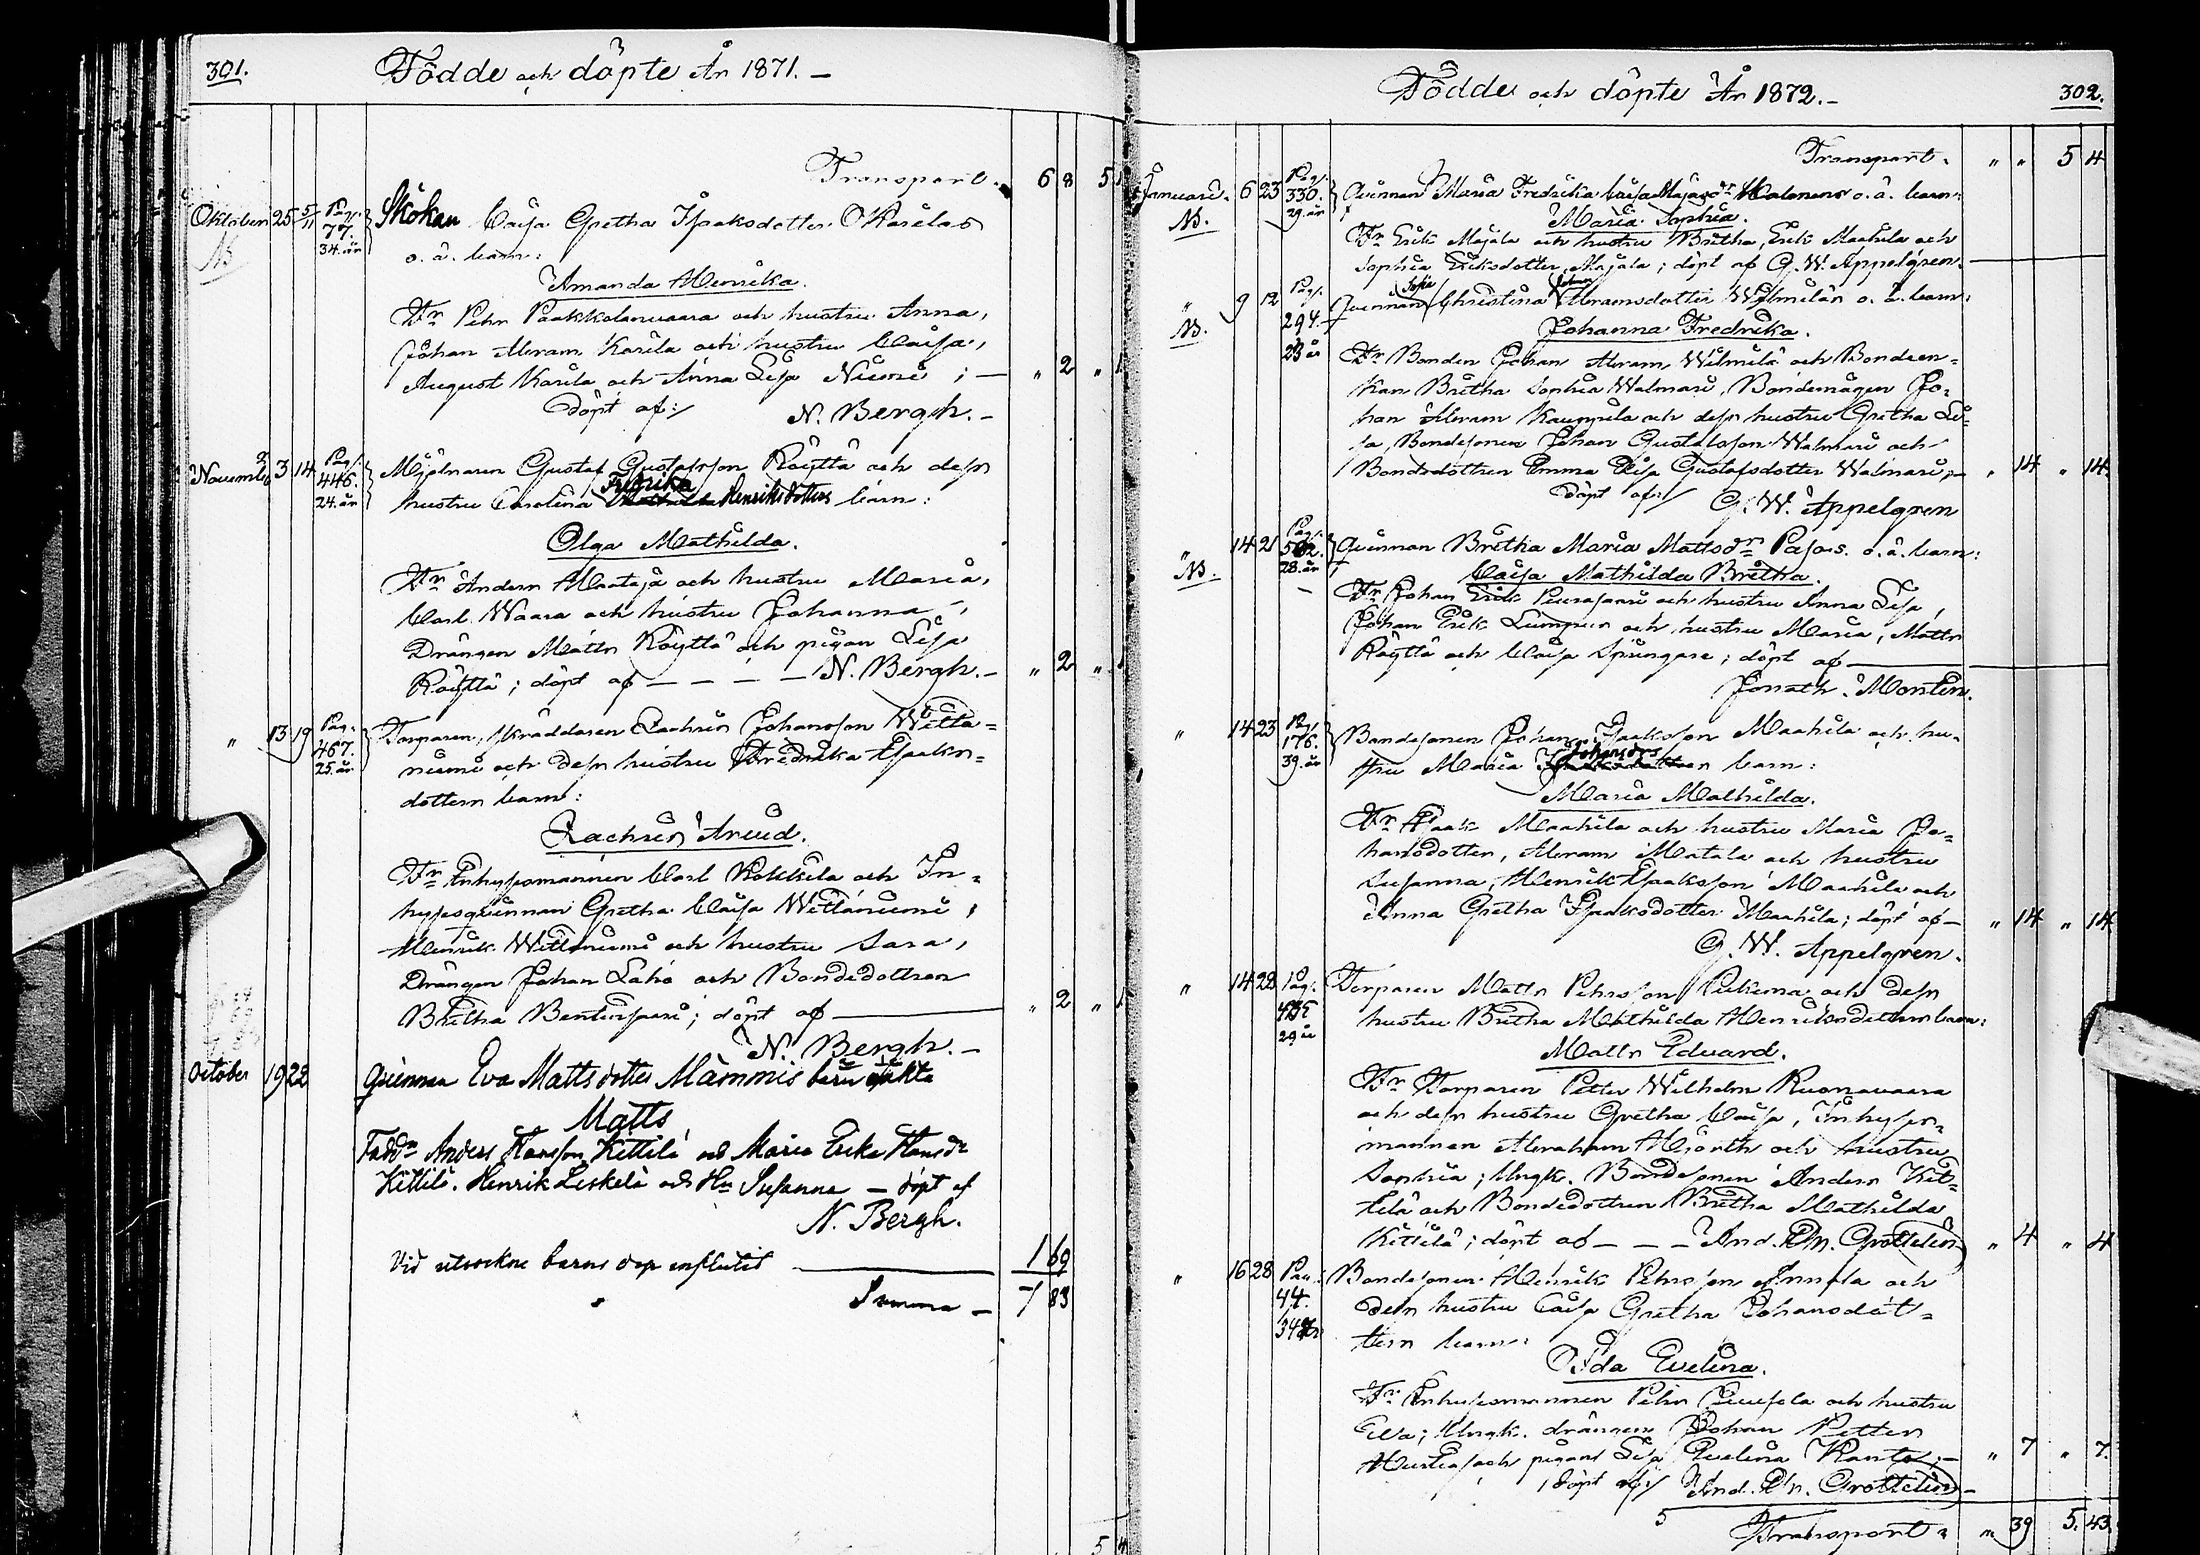 301.
Födde och döpte År 1871. –
Transport. 6 8 5
Oktober 25 5/11 Pag. 77. 34. år Skökan Caisa Gretha Isaksdotter Karilas
NB o. ä. barn:
Amanda Henrika.
Fr Pehr Paakkolanvaara och hustru Anna,
Johan Abram Karila och hustru Caisa,
August Karila och Anna Lisa Niemi ; — " 2 "
döpt af:/ N. Bergh. –
November 3 14 Pag. 446. 24. år Mjölnaren Gustaf Gustafsson Röyttä och dess
hustru Carolina Fredrika Henriksdotters barn:
Olga Mathilda.
Fr Anders Maataja och hustru Maria,
Carl Waara och hustru Johanna,
Drängen Matts Röyttä och pigan Lisa
Röyttä ; döpt af — — — — N. Bergh. – " 2 "
" 13 19 Pag. 467. 25. år Torparen, skräddaren Zachris Johansson Witta-
niemi och dess hustru Fredrika Isaks-
dotters barn:
Zachris Arvid.
Fr Inhysesmannen Carl Kokkila och In-
hysesqvinnan Gretha Caisa Wittaniemi,
Henrik Wittaniemi och hustru Sara,
Drängen Johan Laho och Bondedottren
Britha ; döpt af — " 2 "
N. Bergh. –
October 19 22 Qvinnan Eva Mattsdotter Mämmis barn oäkta
Matts
Faddr Anders Hansson Kittilä och Maria Erika Hansdr
Kittilä. Henrik Leskelä och Hu Susanna — döpt af
N. Bergh.
Vid utsockne barns dop influtit — 1 69
Summa – 7 83
Födde och döpte År 1872. –
302.
Transport. " " 5 4
Januari. 6 23 Pag. 330. 29. år Qvinnan Maria Fredrika o. ä. barn:
NB. Maria Sophia.
Fr Erik Majala och hustru Britha, Erik Maahila och
Sophia Eriksdotter Majala ; döpt af G. W. Appelgren.
" 9 12 Pag. 294. 23 år Qvinnan Sofia Christina Abramsdotter Wilmilän o. ä. barn:
NB. Johanna Fredrika.
Fr Bonden Johan Abram Wilmilä och Bondeen-
kan Britha Sophia Walmari, Bondemågen Jo-
han Abram Kauppila och dess hustru Gretha Li-
sa, Bondesonen Johan Gustafsson Walmari och
Bondedottren Emma Lisa Gustafsdotter Walmari ; — " 14 " 14.
döpt af:/ G. W. Appelgren
" 14 21 Pag. 28. år Qvinnan Britha Maria Mattsdr Pajas. o. ä. barn:
NB. Caisa Mathilda Britha.
Fr Johan Erik Peurasaari och hustru Anna Lisa,
Johan Erik Lumpus och hustru Maria, Matts
Röyttä och Caisa Springare ; döpt af —
Jonath. Montin.
" 14 23 Pag. 176. 39. år Bondesonen Johan Isaksson Maahila och hu-
stru Maria Johansdrs barn:
Maria Mathilda.
Fr Isaak Maahila och hustru Maria Jo-
hansdotter, Abram Matala och hustru
Susanna, Henrik Isaksson Maahila och
Anna Gretha Isaksdotter Maahila ; döpt af – " 14 " 14
G. W. Appelgren.
" 14 22 Pag. 29 år Torparen Matts Pehrsson och dess
hustru Britha Mathilda Henriksdotters barn:
Matts Edvard.
Fr Torparen Petter Wilhelm Ruonavaara
och dess hustru Gretha Caisa, Inhyses-
mannen Abraham Hjorth och hustru
Sophia ; Ungk. Bondesonen Anders Kit-
tilä och Bondedottren Britha Mathilda
Kittilä ; döpt af — — — And. Joh. Grottelin " 4 " 4
" 16 28 Pag. 44. 34 år Bondesonen Henrik Pehrsson Annala och
dess hustru Caisa Gretha Johansdot-
ters barn:
Ida Evelina.
Fr Inhysesmannen Pehr och hustru
Eva ; Ungk. drängen Johan Petter
och pigan Lisa Evelina Kanto ; – " 7 " 7.
döpt af:/ And. Joh. Grottelin –
Transport. " 39 5. 43.